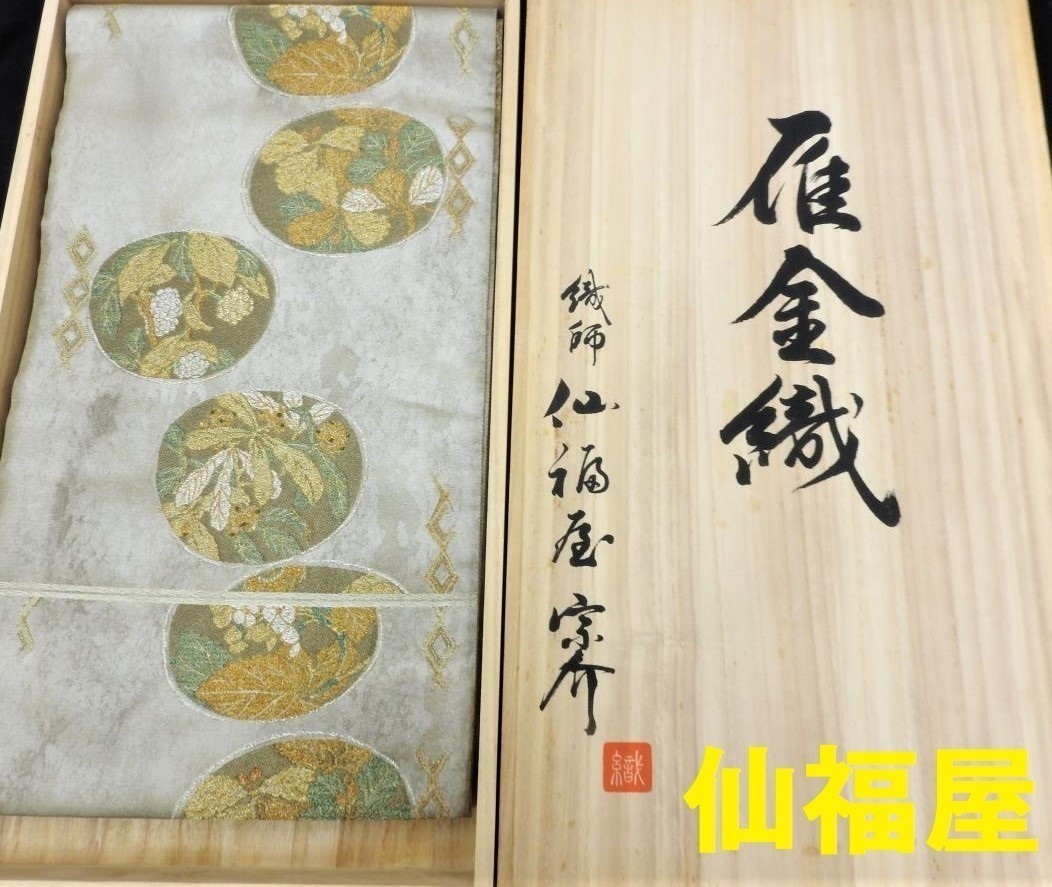 雁金織
織師 仙福屋 宗介
織
仙福屋